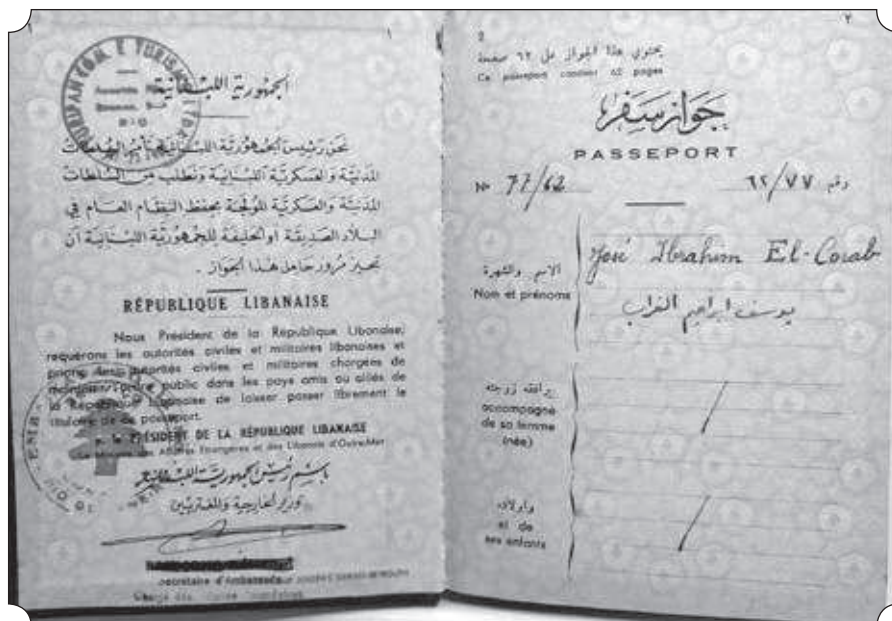 ١
الجمهورية اللبنانية
نحن رئيس الجمهورية اللبنانية نأمر السلطات
المدنية والعسكرية اللبنانية ونطلب من السلطات
المدنية والعسكرية المولجة بحفظ النظام العام في
البلاد الصديقة او الحليفة للجمهورية اللبنانية ان
تجيز مرور حامل هذا الجواز .
RÉPUBLIQUE LIBANAISE
Nous Président de la République Libanaise,
requérons les autorités civiles et militaires libanaises et
prions les autorités civiles et militaires chargées de
maintenir l'ordre public dans les pays amis ou alliés de
la République Libanaise de laisser passer librement le
titulaire de ce passeport.
P. le PRÉSIDENT DE LA RÉPUBLIQUE LIBANAISE
Le Ministre des Affaires Etrangères et des Libanais d'Outre-Mer
باسم رئيس الجمهورية اللبنانية
وزير الخارجية والمغتربين
Secrétaire d'Ambassade
٢
2
يحتوي هذا الجواز على ٦٢ صفحة
Ce passeport contient 62 pages
جواز سفر
PASSEPORT
Nº 77/62 رقم ٦٢/٧٧
الاسم والشهرة
Nom et prénoms
José Ibrahim El-Corab
يوسف ابراهيم الغراب
ترافقه زوجته
accompagné
de sa femme
(née)
واولاده
et de
ses enfants